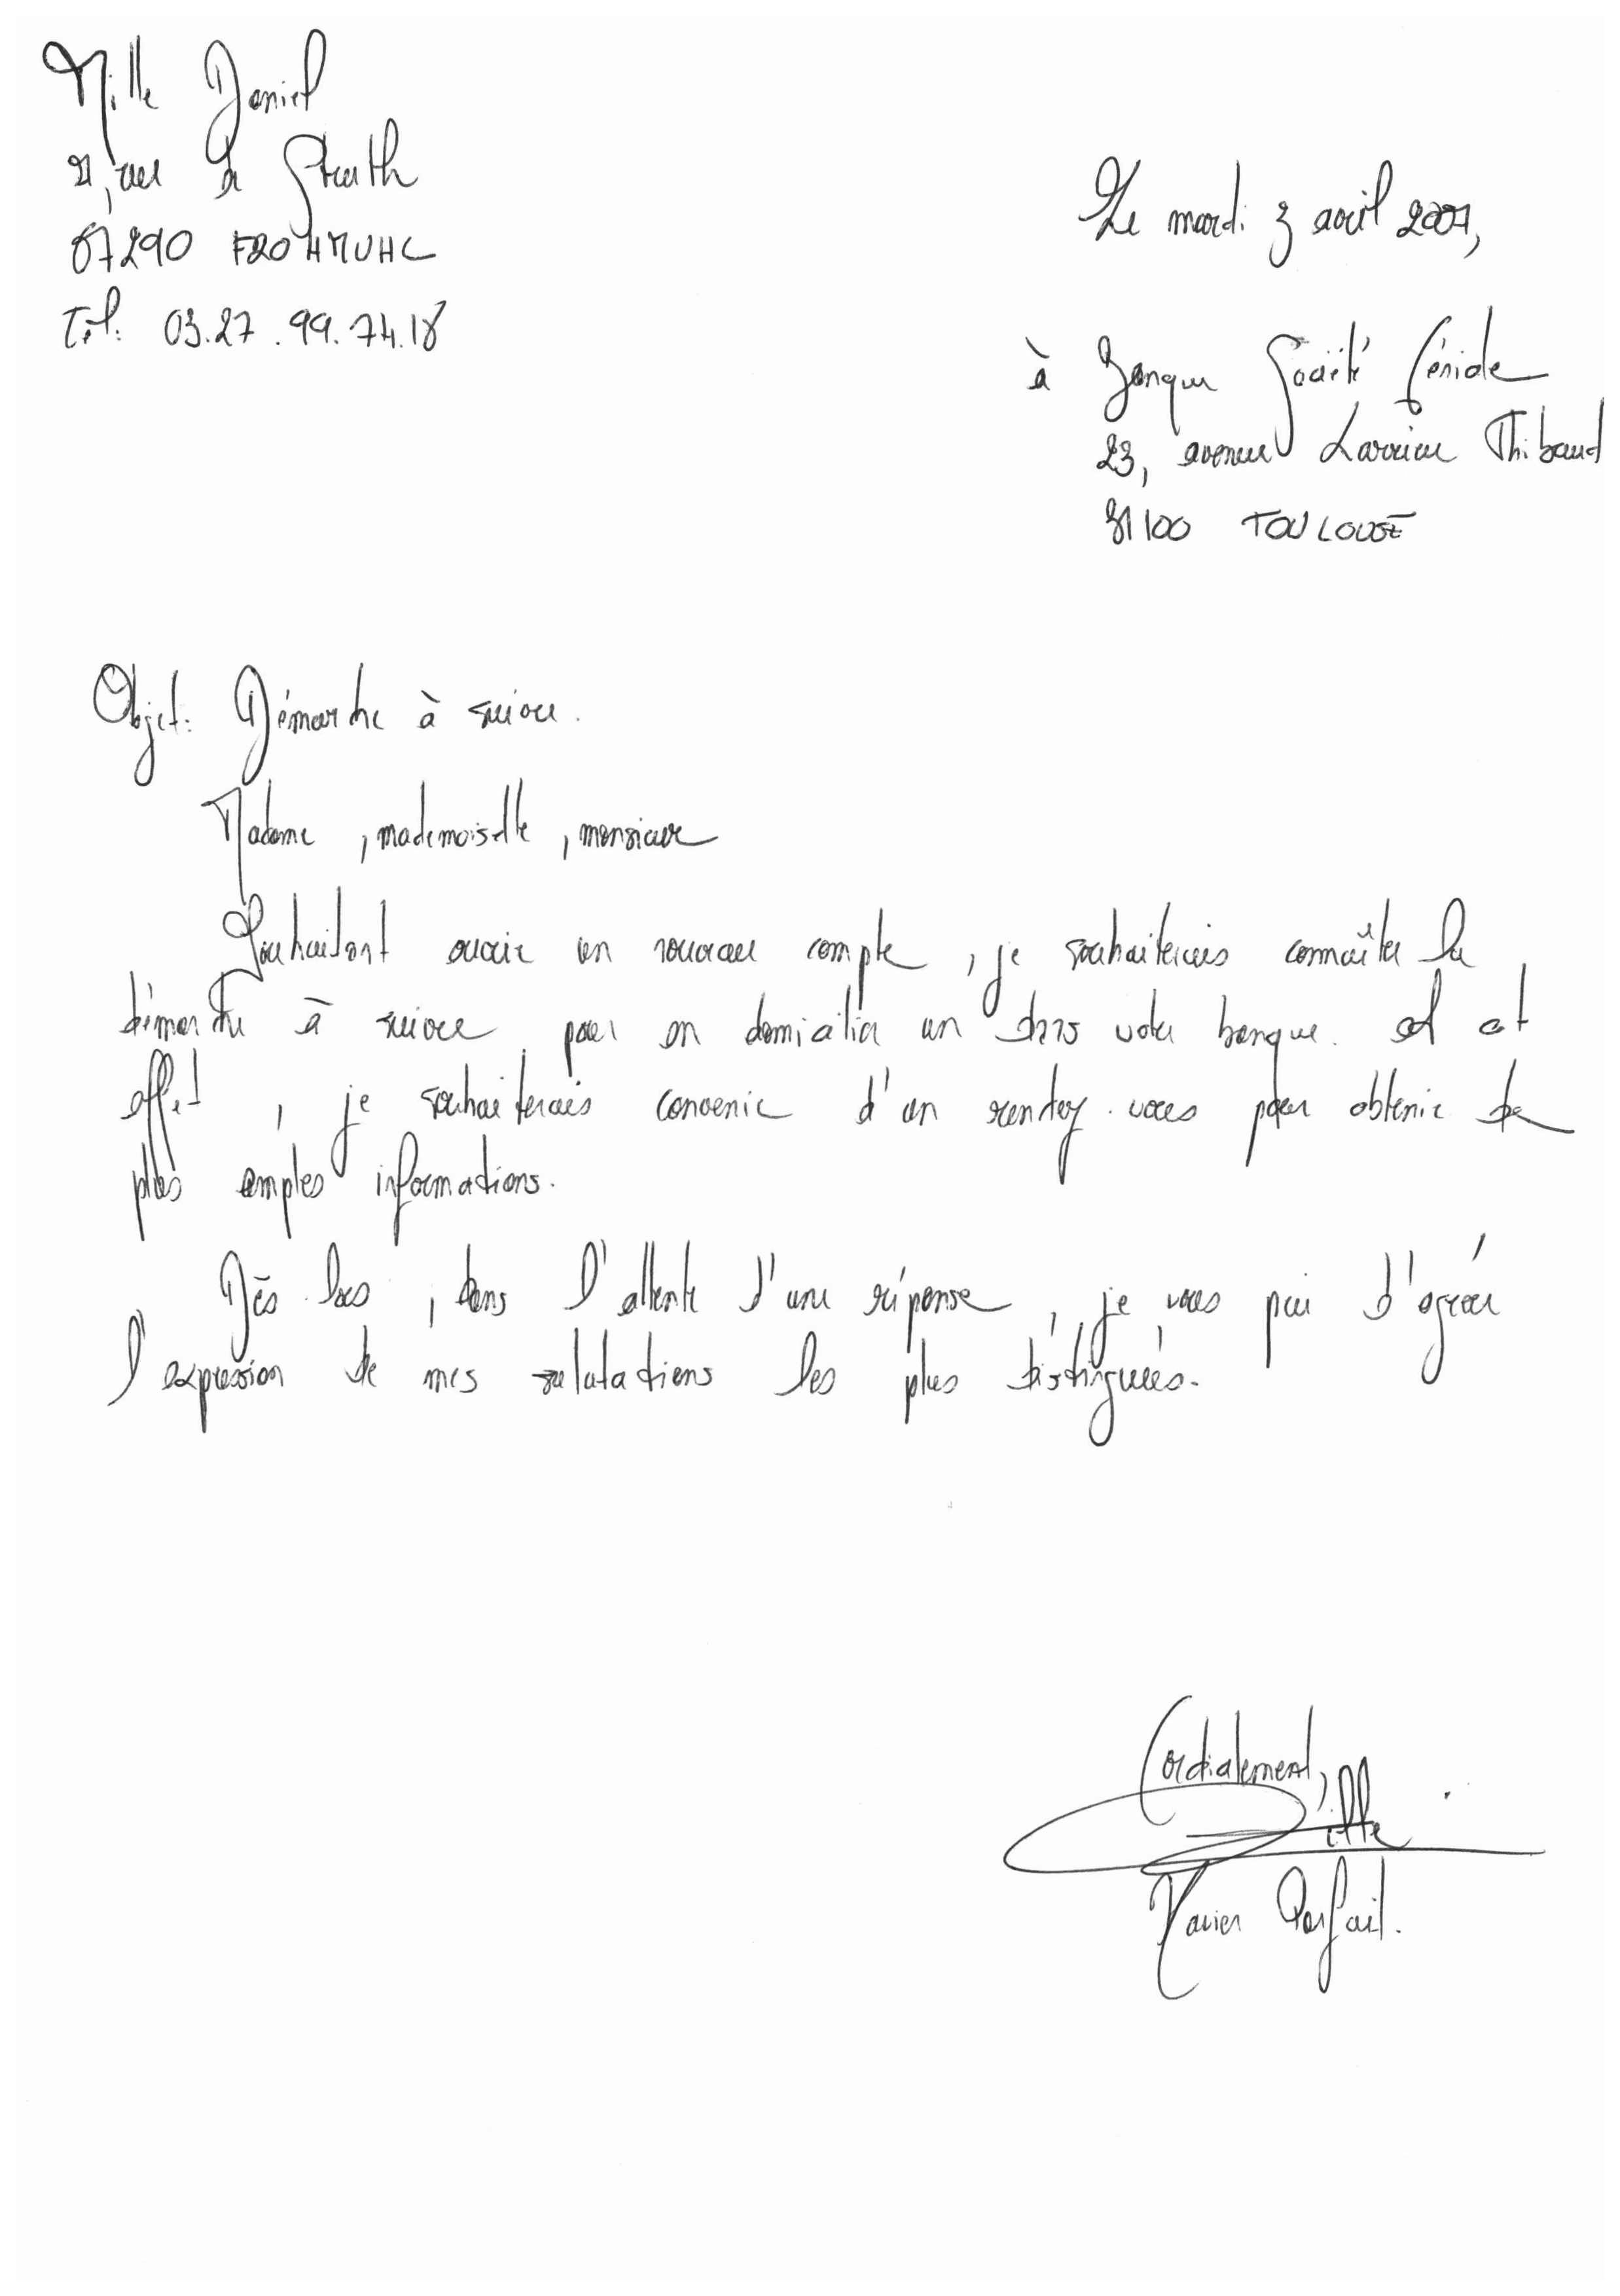 Mille Daniel
21, rue de Struth
67290 FROHMUHL
Tél: 03.27.99.74.18
Le mardi 3 avril 2007,
à Banque Société Générale
23, avenue Larrieu Thibaud
31100 TOULOUSE
Objet: Démarche à suivre.
Madame, mademoiselle, monsieur
Souhaitant ouvrir un nouveau compte, je souhaiterais connaître la
démarche à suivre pour en domicilier un dans votre banque. A cet
effet, je souhaiterais convenir d'un rendez-vous pour obtenir de
plus amples informations.
Dès lors, dans l'attente d'une réponse, je vous prie d'agréer
l'expression de mes salutations les plus distinguées.
Cordialement,
Mille
Xavier Parfait.